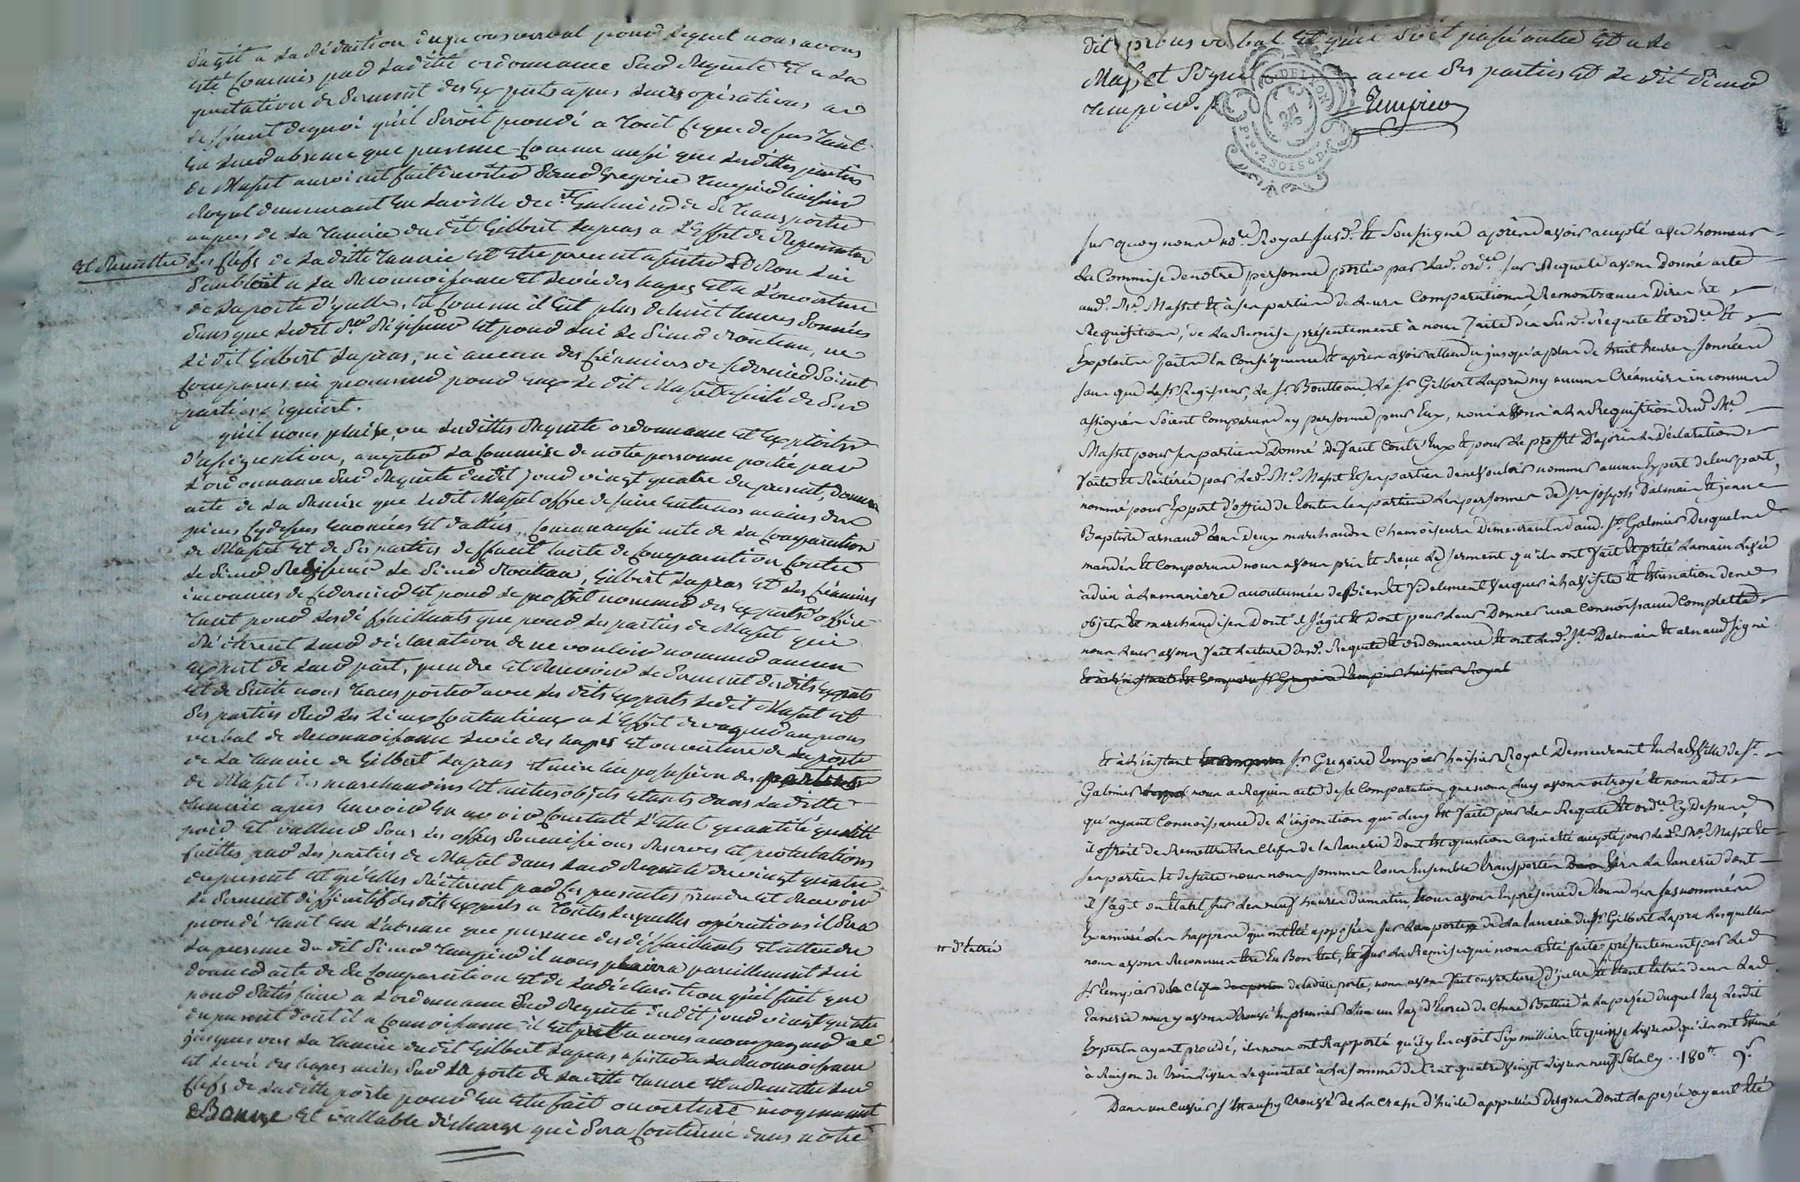 s'agit a la rédaction du procesverbal pour lequel nous avons
été Commis par laditte ordonnance sur Requete et a la
prestation de serment des Experts apres leurs opérations au
deffaut dequoi qu'il seroit procedé a tout ce que dessus tant
en leur absence que presence comme aussi que lesdittes parties
de Masset auroient fait inviter sieur Gregoire Tempier huissier
Royal demeurant en la ville de St Galmier de se transporter
aupres de la Tannerie dudit Gilbert Lapras a l'Effet de Representer
et Remettre les clefs de laditte Tannerie et etre present
a la Reconnoissance et levée des scapes et a l'ouverture
de la porte d'ycelle. Et comme il est plus de huit heures sonnées
sans que ledit sr Régisseur et pour lui le sieur Boutteau, ne
ledit Gilbert Lapras, ni aucun des Créanciers de ce dernier soient
comparus ni personne pour eux ledit Masset assisté de ses
parties requiert.
qu'il nous plaise, vu lesdittes Requete ordonnance et exploits
d'assignation, accepter la commise de notre personne portée par
l'ordonnance sur Requete dudit jour vingt quatre du present, donner
acte de la remise que ledit Masset offre de faire entre nos mains des
pieces cydessus enoncées et dattées, comme aussi acte de la comparution
de Masset et de ses parties deffaut faute de comparution contre
le sieur Régisseur le sieur Boutteau, Gilbert Lapras et les Créanciers
inconnus de ce dernier et pour le proffit nommer des experts d'office
tant pour les déffaillants que pour les parties de Masset qui
déclarent leur déclaration de ne vouloir nommer aucun
expert de leur part, prendre et Recevoir le serment desdits experts
et de suite nous transporter avec les dits experts ledit Masset et
ses parties sur les lieux contentieux a l'Effet de vaquer au procès
verbal de Reconnoissance levée des scapes et ouverture de la porte
de la Tannerie de Gilbert Lapras
de Masset des marchandises et autres objets etants dans laditte
Tannerie apres en avoir constaté l'etat quantité qualité
poid et valleur sous les offres soumissions Reserves et protestations
faittes par les parties de Masset dans leur Requete du vingt quatre
du present et qu'elles réiterent par ces presentes prendre et Recevoir
le serment déffinitif desdits experts a toutes lesquelles opérations il sera
procedé tant en l'absence que presence des déffaillants et attendu
la presence du dit sieur Tempier il nous plaira pareillement lui
donner acte de sa comparution et de la déclaration qu'il fait que
pour satisfaire a l'ordonnance sur Requete dudit jour vingt quatre
du present dont il a connoissance il est prest a nous accompagner
jusques vers la Tannerie dudit Gilbert Lapras assister a la Reconnoissance
et levée des scapes mises sur la porte de laditte Tannerie et a Remettre les
clefs de laditte porte pour en etre fait ouverture moyennant
Bonne et vallable décharge qui sera contenue dans notre
dit procès verbal et qu'il soit passé outre et a le
Masset signé avec ses parties et le dit sieur
Tempier.
Tempier
Sur quoy nous nore Royal susd. et soussigné après avoir accepté avec honneur
La Commise de notre personne portée par lad. ordce sur Requete avons donné acte
aud. Me Masset et à ses parties de leurs Comparutions Remontrances Dires et
Requisitions, de La Remise présentement à nous faite des susd. Requete et ordce et
Exploits faits En Conséquence et après avoir attendu jusqu'a plus de huit heures sonnées
sans que le sr Régisseur, Le sr Boutteau, Le sr Gilbert Lapra ny aucuns Créanciers inconnus
assignés soient Comparus ny personne pour Eux, nous avons à La Requisition dud. Me
Masset pour ses parties donné Defaut Contr'Eux et pour Le proffit D'après La Déclaration
faite et Réitérée par Led. Me Masset et ses parties de ne vouloir nommer aucun Expert de leur part,
nommé pour Expert d'office de toutes Les parties Les personnes de srs joseph Dalmais et jean
Baptiste arnaud tous deux marchands Chamoiseurs Demeurants aud. St Galmier Desquels
mandés et Comparus nous avons pris et Reçu Le serment qu'ils ont fait et prêté La main Levée
à dieu à La maniere accoutumée de Bien et fidelement vacquer à La visite et Estimation des
objets et marchandises Dont il s'agit et Dont pour Leur Donner une Connoissance Complette
nous Leur avons fait Lecture desd. Requete et ordonnance et ont Lesd. srs Dalmais et arnaud signé
Et à L'instant Est Comparu sr Gregoire Tempier huissier Royal
Et à L'instant sr Gregoire Tempier huissier Royal Demeurant En La Ville de St
Galmier nous a Requis acte de sa Comparution que nous Luy avons octroyé et nous a dit
qu'ayant Connoissance de L'injonction qui Luy Est faite par Les Requete et ordce Cy dessus,
il offroit de Remettre Les Clefs de la Tanerie Dont Est question Ce qui a été accepté par Led. Me Masset et
ses parties Et de suite nous nous sommes tous Ensemble transportés En La Tanerie dont
il s'agit ou Etant sur Les neuf heures du matin, nous avons En présence de tous Les susnommés
Examiné Les scappes qui ont été apposées sur La porte de La Tanerie du sr Gilbert Lapra Lesquelles
nous avons Reconnues Etre En Bon Etat, et sur La Remise qui nous a été faite présentement par Led.
sr Tempier de la Clef de ladite porte, nous avons fait ouverture d'jcelle et Etant Entrés dans Lad.
" d'Entrée
Tanerie nous y avons trouvé Un premier Lieu un tas d'Ecorce de Chene Battue à La pesée duquel tas Lesdits
Experts ayant procédé, ils nous ont Rapporté qu'il y En avoit six milliers et quinze Livres qu'ils ont Estimé
à Raison de trois Livres Le quintal à La somme de Cent quatre vingt Livres neuf sols cy .. 180tt 9s
Dans un Cuvier s'Est aussy trouvé de La Crasse d'huile appellée Degras Dont La pesée ayant Eté